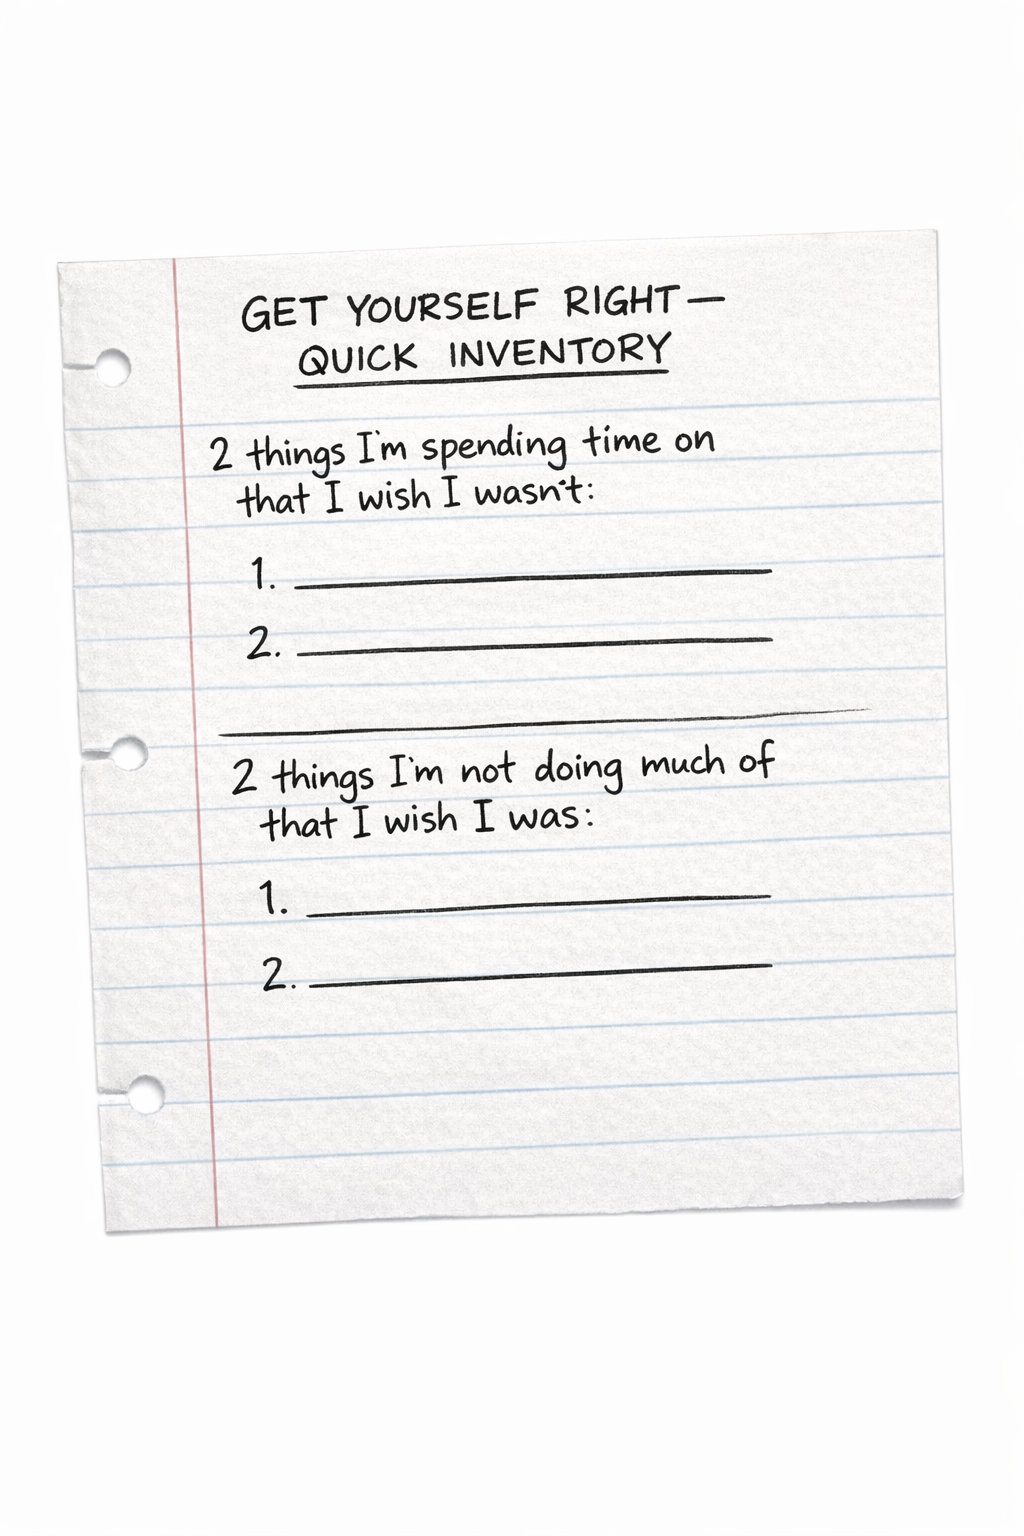 GET YOURSELF RIGHT—
QUICK INVENTORY
2 things I'm spending time on
that I wish I wasn't:
1.
2.
2 things I'm not doing much of
that I wish I was:
1.
2.